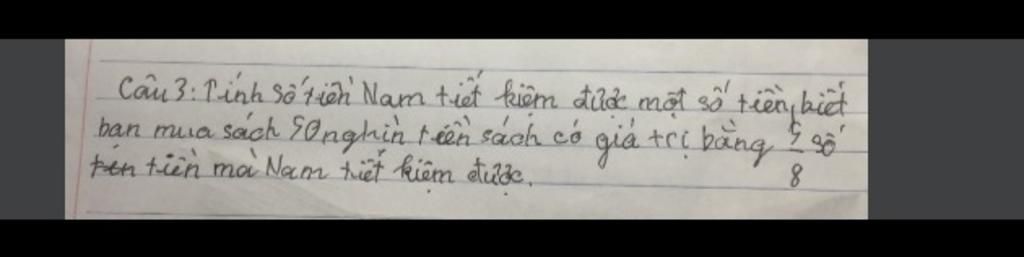 Câu 3: Tính số tiền Nam tiết kiệm được một số tiền, biết
bạn mua sách 50 nghìn tiền sách có giá trị bằng 5/8 số
tiền mà Nam tiết kiệm được.